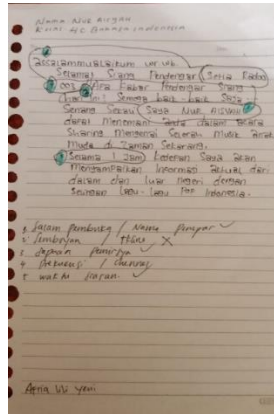 Nama: Nur Aisyah
Kelas: 4C Bahasa Indonesia
Assalammualaikum wr wb.
Selamat Siang Pendengar Setia Radio
Apa Kabar Pendengar Siang
hari ini? Semoga baik-baik saja
Senang Sekali Saya Nur Aisyah
dapat Menemani anda dalam acara
Sharing Mengenai Selerah Musik Anak
Muda di Zaman Sekarang.
Selama 1 Jam kedepan Saya akan
Mengampaikan Informasi aktual dari
dalam dan luar Negeri dengan
Selingan lagu-lagu Pop Indonesia.
1. Salam Pembuka / Nama
2. Semboyan / X
3. Sapaan Pemirsa
4. Frekuensi /
5. waktu siaran.
Afria lili yeni